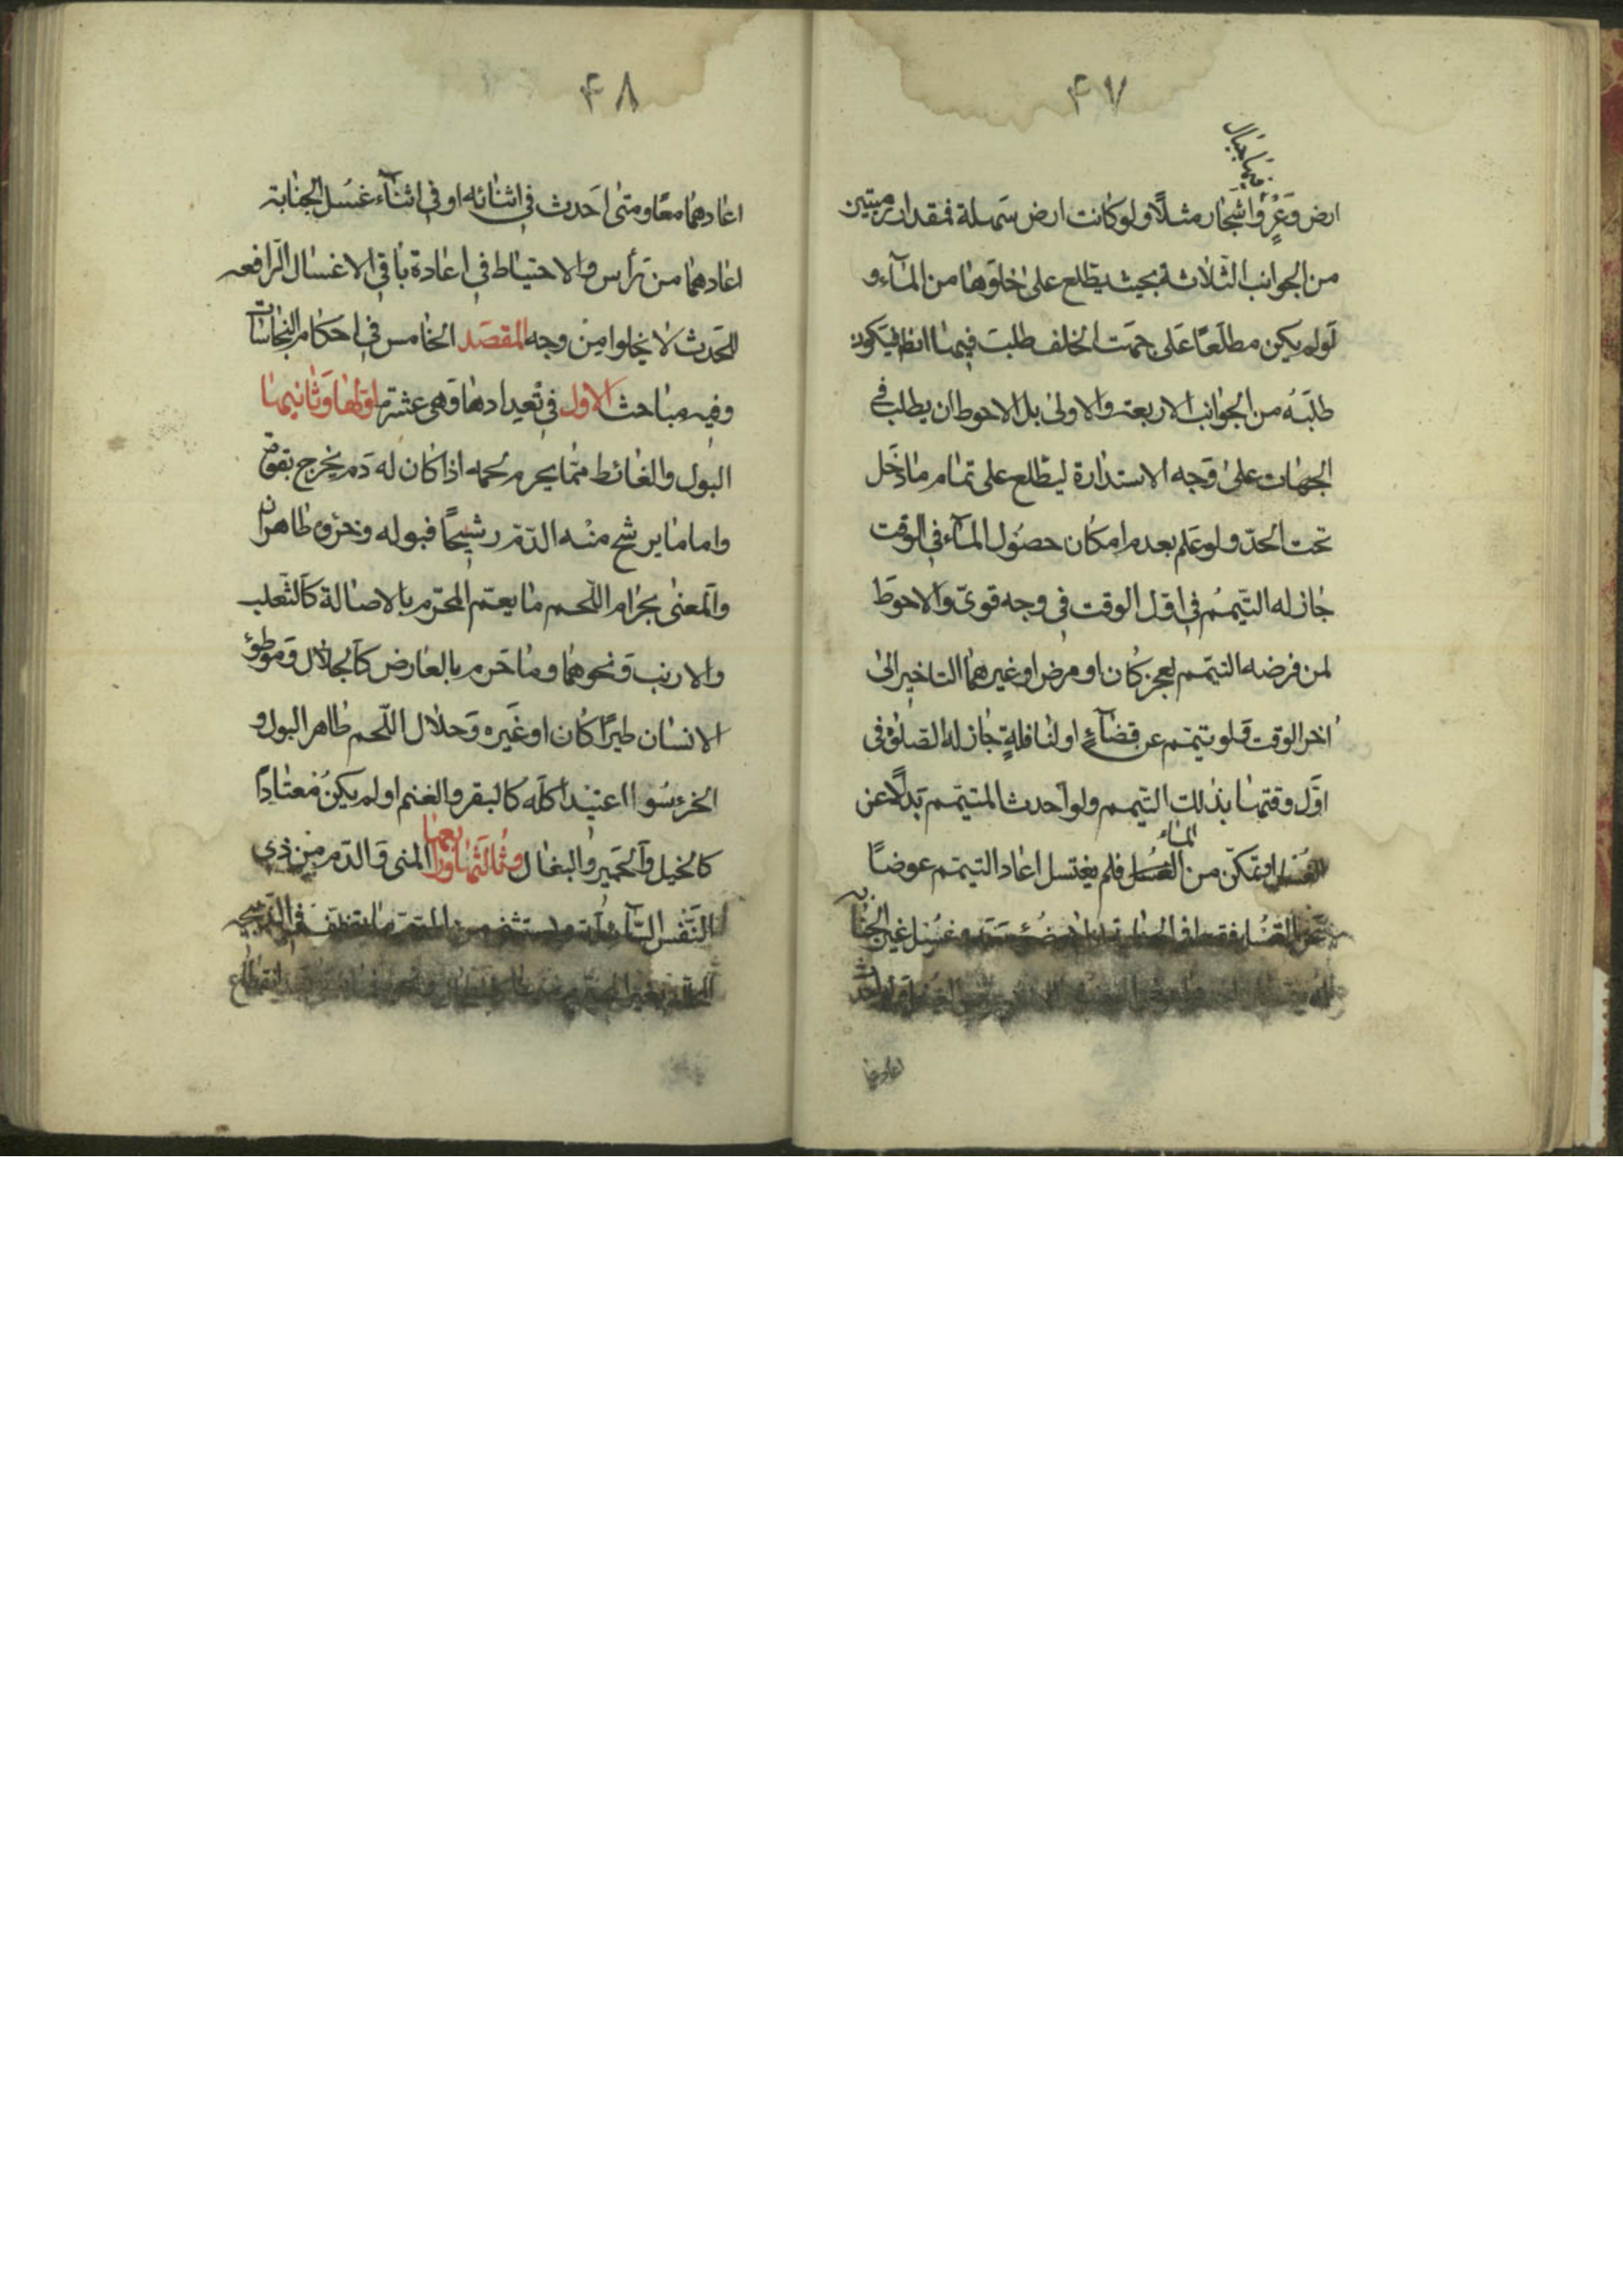 ۴۷
فيها جبال
ارض وَعْرٍ واشجار مثلًا ولو كانت ارض سهلة فمقدار رميتين
من الجوانب الثلاثة بحيث يطّلع على خلوّها من المآء و
لو لم يكن مطلعًا على جهت الخلف طلب فيها ايضا فيكون
طلبَهُ من الجوانب الاربعة والاولى بل الاحوط ان يطلب في
الجهات على وجه الاستدارة ليطّلع على تمام ما دخل
تحت الحدّ ولو علم بعدم امكان حصول المآء في الوقت
جاز له التيمّم في اوّل الوقت في وجه قويّ والاحوط
لمن فرضه التيمّم لعجز كان او مرض او غيرهما التاخير الى
اخر الوقت فلو تيمّم عن قضآءٍ او لنافلةٍ جاز له الصّلوة في
اوّل وقتها بذلك التيمم ولو احدث المتيمّم بدلًا عن
المآء
الغسل او تمكّن من الغسل فلم يغتسل اعاد التيمّم عوضًا
عن الغسل فقط في الجنابة وغسل غير الجنابة
اعادهما
۴۸
اعادهما معًا ومتى احدث في اثنائه او في اثنآء غسل الجنابة
اعادهما من رأس والاحتياط في اعادة باقي الاغسال الرّافعه
للحَدث لا يخلوا من وجه المقصَد الخامس في احكام النجاسات
وفيه مباحث الاول في تعدادها وهي عشرة اوّلها وثانيها
البول والغائط ممّا يحرم لحمه اذا كان له دم يخرج بقوّة
واما ما يرشح منه الدّم رشيحًا فبوله وخرؤه طاهران
والمعنى بحرام اللّحم ما يعمّ المحرّم بالاصالة كالثّعلب
والارنب ونحوهما وما حرم بالعارض كالجلّال وموطؤ
الانسان طيرًا كان او غيره وحلال اللّحم طاهر البول و
الخرء سوا اعتيد اكله كالبقر والغنم او لم يكن مُعتادًا
كالخيل والحمير والبغال وثالثها ورابعها المنى والدّم من ذي
النّفس السّآئلة ويستثنى من الدّم ما يتخلف في الذّبيحة